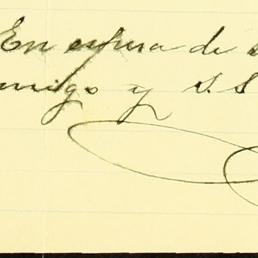 En espera de s
amigo y s.s